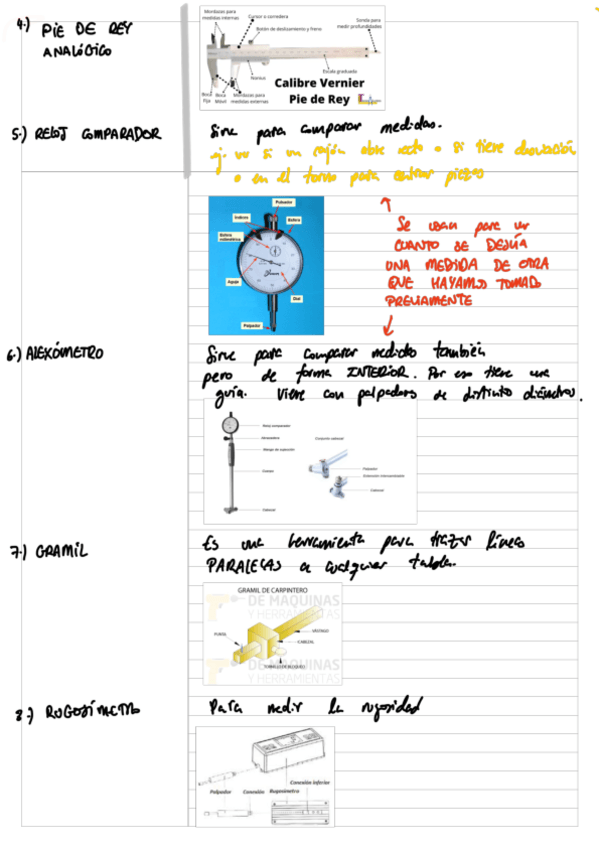 4.) PIE DE REY
ANALÓGICO
Mordazas para
medidas internas
Cursor o corredera
Botón de deslizamiento y freno
Sonda para
medir profundidades
Nonius
Escala graduada
Boca
Fija
Boca
Móvil
Mordazas para
medidas externas
Calibre Vernier
Pie de Rey
5.) RELOJ COMPARADOR
Sirve para comparar medidas.
ej. ver si un cajón abre recto o si tiene desviación
o en el torno para centrar piezas
Pulsador
Índices
Bisina
Aguja
Dial
Palpador
Se usan para ver
CUANTO SE DESVÍA
UNA MEDIDA DE OTRA
QUE HAYAMOS TOMADO
PREVIAMENTE
6.) ALEXÓMETRO
Sirve para comparar medidas también
pero de forma INTERIOR. Por eso tiene una
guía. Viene con palpadores de distinto diámetros.
Reloj comparador
Mango de sujeción
Palpador
Cabezal
Cabezal
7.) GRAMIL
Es una herramienta para trazar líneas
PARALELAS a cualquier tabla.
GRAMIL DE CARPINTERO
DE MAQUINAS
Y HERRAMIENTAS
PUNTA
VÁSTAGO
CABEZAL
TORNILLO DE BLOQUEO
DE MAQUINAS
Y HERRAMIENTAS
8.) RUGOSÍMETRO
Para medir la rugosidad
Palpador
Conexión
Rugosímetro
Conexión inferior